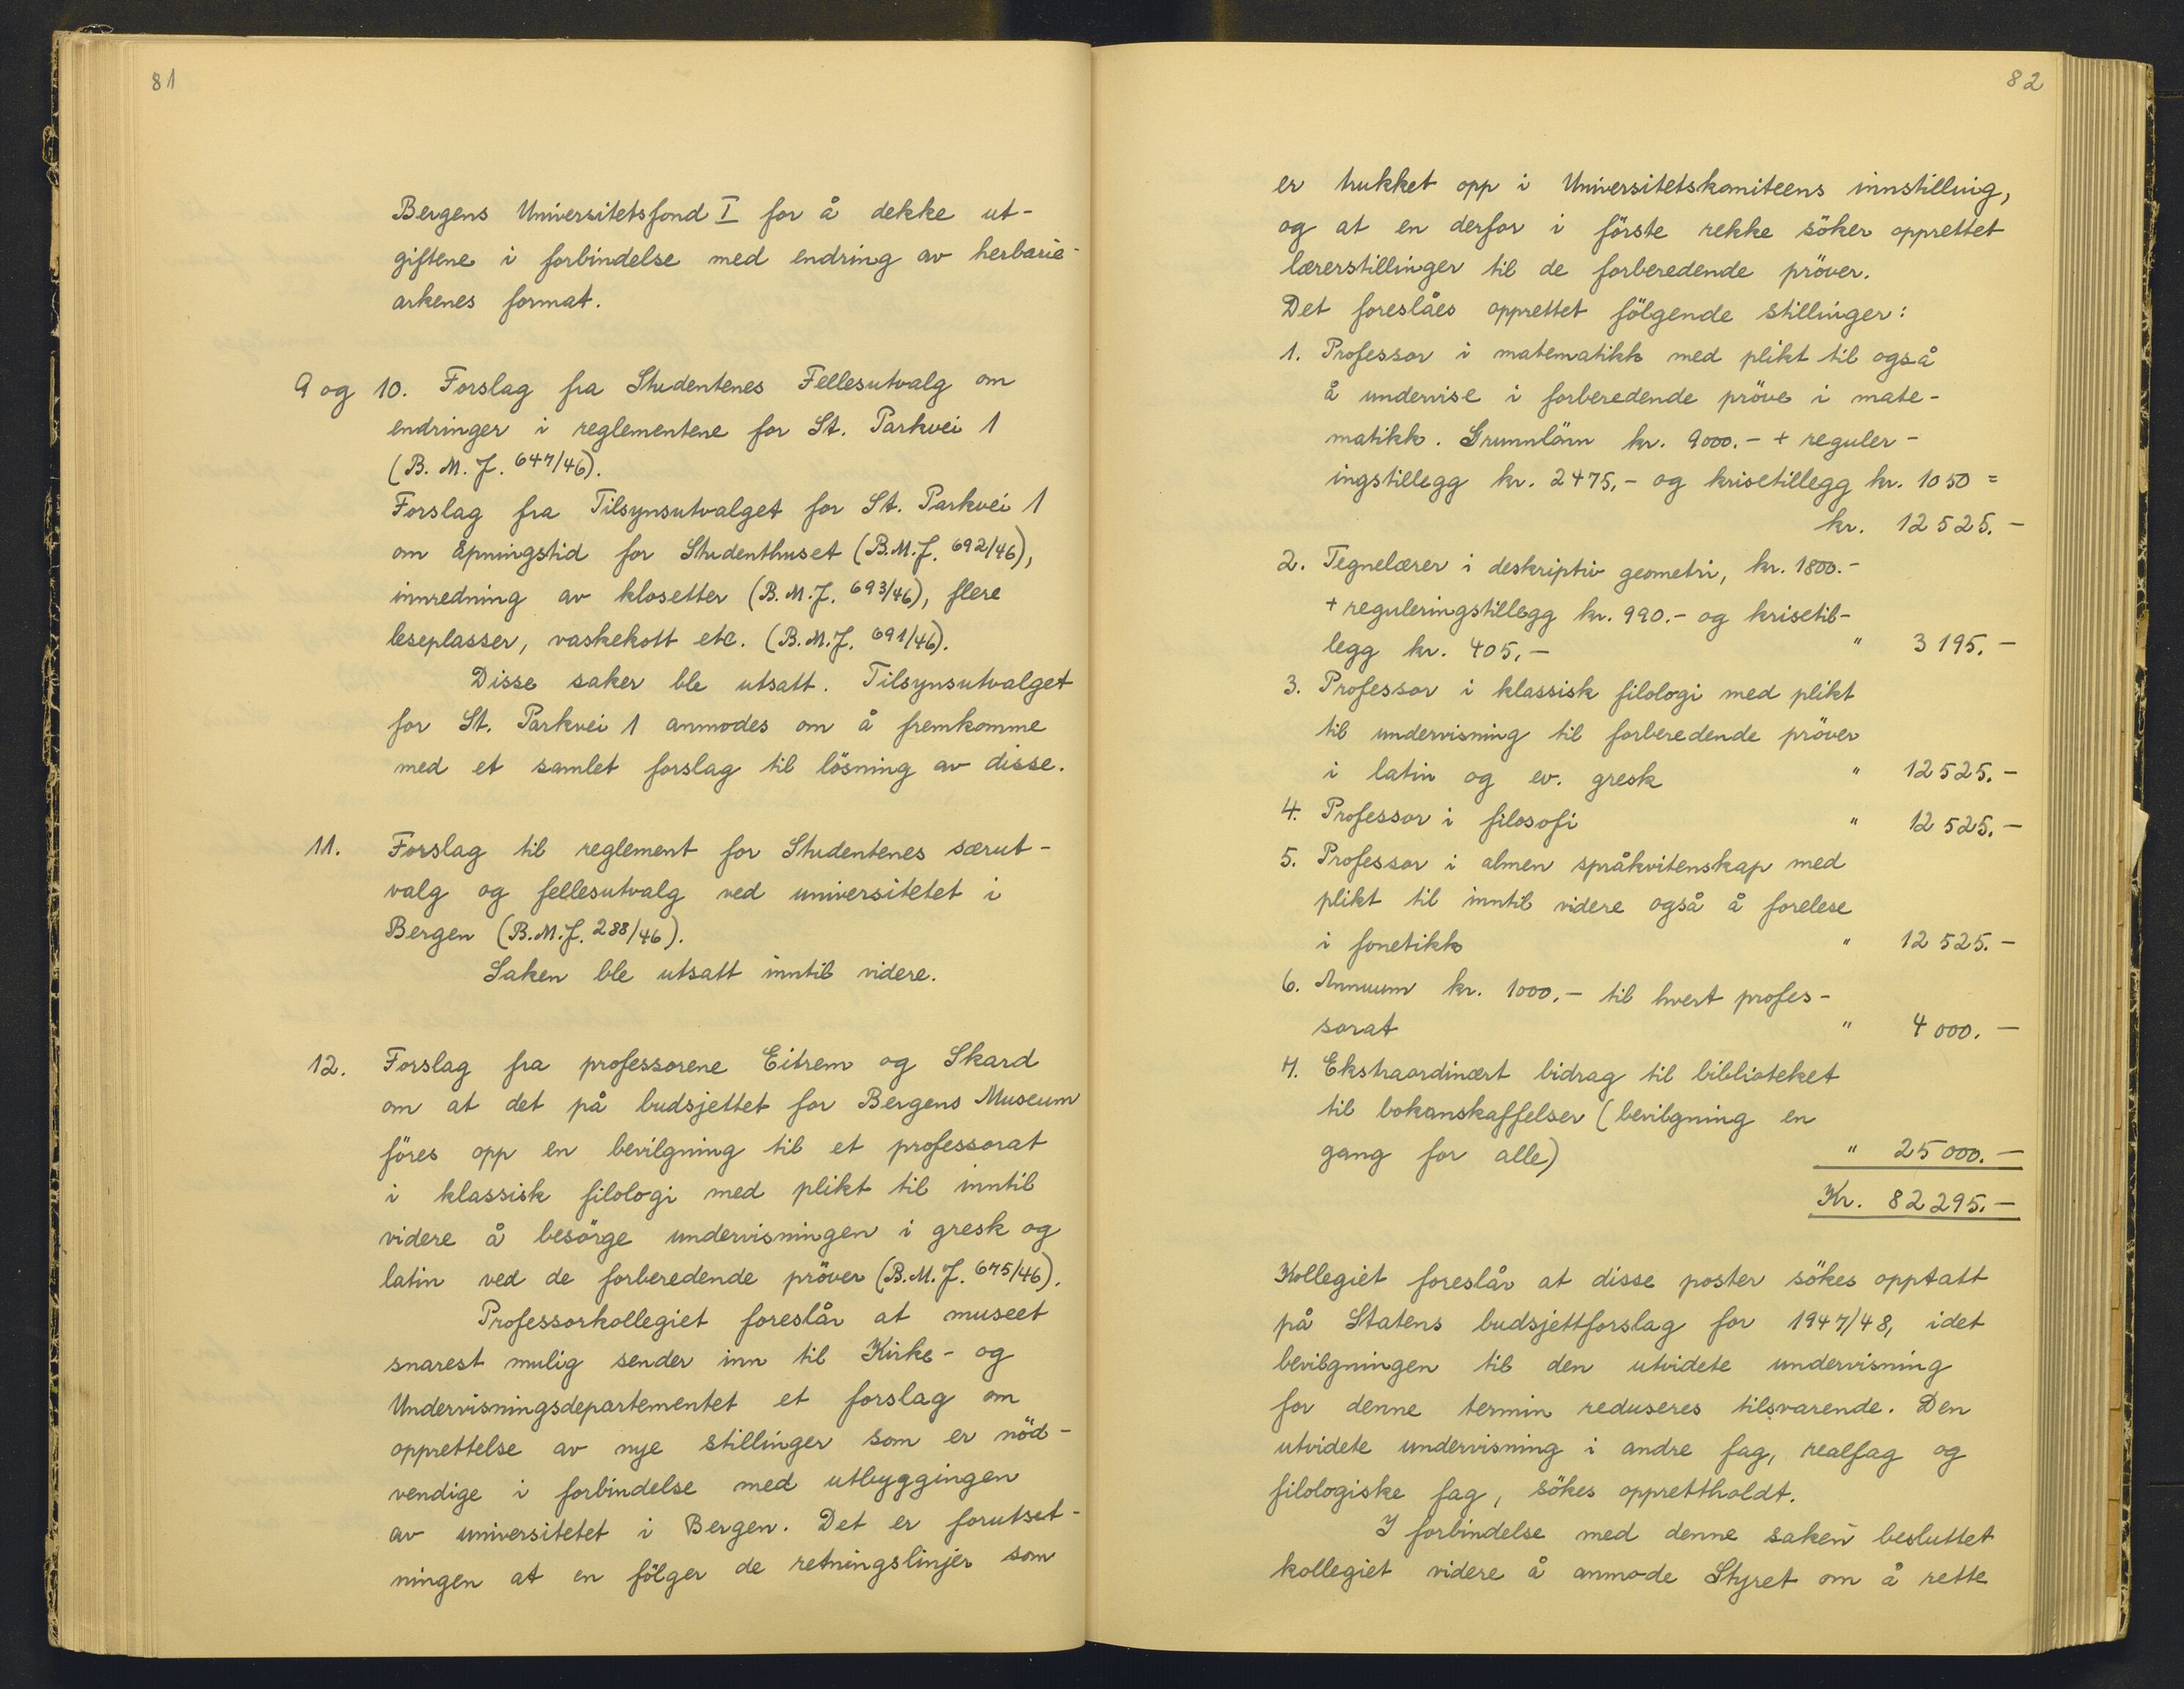 81
Bergens Universitetsfond I for å dekke ut-
giftene i forbindelse med endring av herbarie-
arkenes format.
9 og 10. Forslag fra Studentenes Fellesutvalg om
endringer i reglementene for St. Parkvei 1
(B. M. J. 647/46).
Forslag fra Tilsynsutvalget for St. Parkvei 1
om åpningstid for Studenthuset (B.M.J. 692/46),
innredning av klosetter (B.M.J. 693/46), flere
leseplasser, vaskekott etc. (B.M.J. 691/46).
Disse saker ble utsatt. Tilsynsutvalget
for St. Parkvei 1 anmodes om å fremkomme
med et samlet forslag til lösning av disse.
11. Forslag til reglement for Studentenes særut-
valg og fellesutvalg ved universitetet i
Bergen (B.M.J. 288/46).
Saken ble utsatt inntil videre.
12. Forslag fra professorene Eitrem og Skard
om at det på budsjettet for Bergens Museum
föres opp en bevilgning til et professorat
i klassisk filologi med plikt til inntil
videre å besörge undervisningen i gresk og
latin ved de forberedende pröver (B.M.J. 675/46).
Professorkollegiet foreslår at museet
snarest mulig sender inn til Kirke- og
Undervisningsdepartementet et forslag om
opprettelse av nye stillinger som er nöd-
vendige i forbindelse med utbyggingen
av universitetet i Bergen. Det er forutset-
ningen at en fölger de retningslinjer som
82
er trukket opp i Universitetskomiteens innstilling,
og at en derfor i förste rekke söker opprettet
lærerstillinger til de forberedende pröver.
Det foreslåes opprettet fölgende stillinger:
1. Professor i matematikk med plikt til også
å undervise i forberedende pröve i mate-
matikk. Grunnlönn kr. 9000.- + reguler-
ingstillegg kr. 2475,- og krisetillegg kr. 1050 =
kr. 12525.-
2. Tegnelærer i deskriptiv geometri, kr. 1800.-
+ reguleringstillegg kr. 990.- og krisetil-
legg kr. 405,- " 3195.-
3. Professor i klassisk filologi med plikt
til undervisning til forberedende pröver
i latin og ev. gresk " 12525.-
4. Professor i filosofi " 12525.-
5. Professor i almen språkvitenskap med
plikt til inntil videre også å forelese
i fonetikk " 12525.-
6. Annuum kr. 1000,- til hvert profes-
sorat " 4000.-
7. Ekstraordinært bidrag til biblioteket
til bokanskaffelser (bevilgning en
gang for alle) " 25000.-
Kr. 82295.-
Kollegiet foreslår at disse poster sökes opptatt
på Statens budsjettforslag for 1947/48, idet
bevilgningen til den utvidete undervisning
for denne termin reduseres tilsvarende. Den
utvidete undervisning i andre fag, realfag og
filologiske fag, sökes opprettholdt.
I forbindelse med denne saken besluttet
kollegiet videre å anmode Styret om å rette